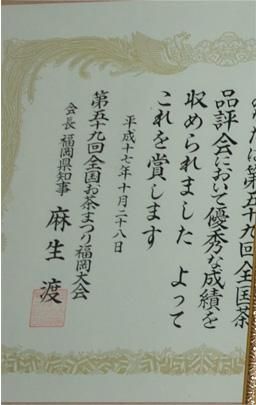 なたは第五十九回全国茶
品評会において優秀な成績を
収められました よって
これを賞します
平成十七年十月二十八日
第五十九回全国お茶まつり福岡大会
会長 福岡県知事 麻生渡